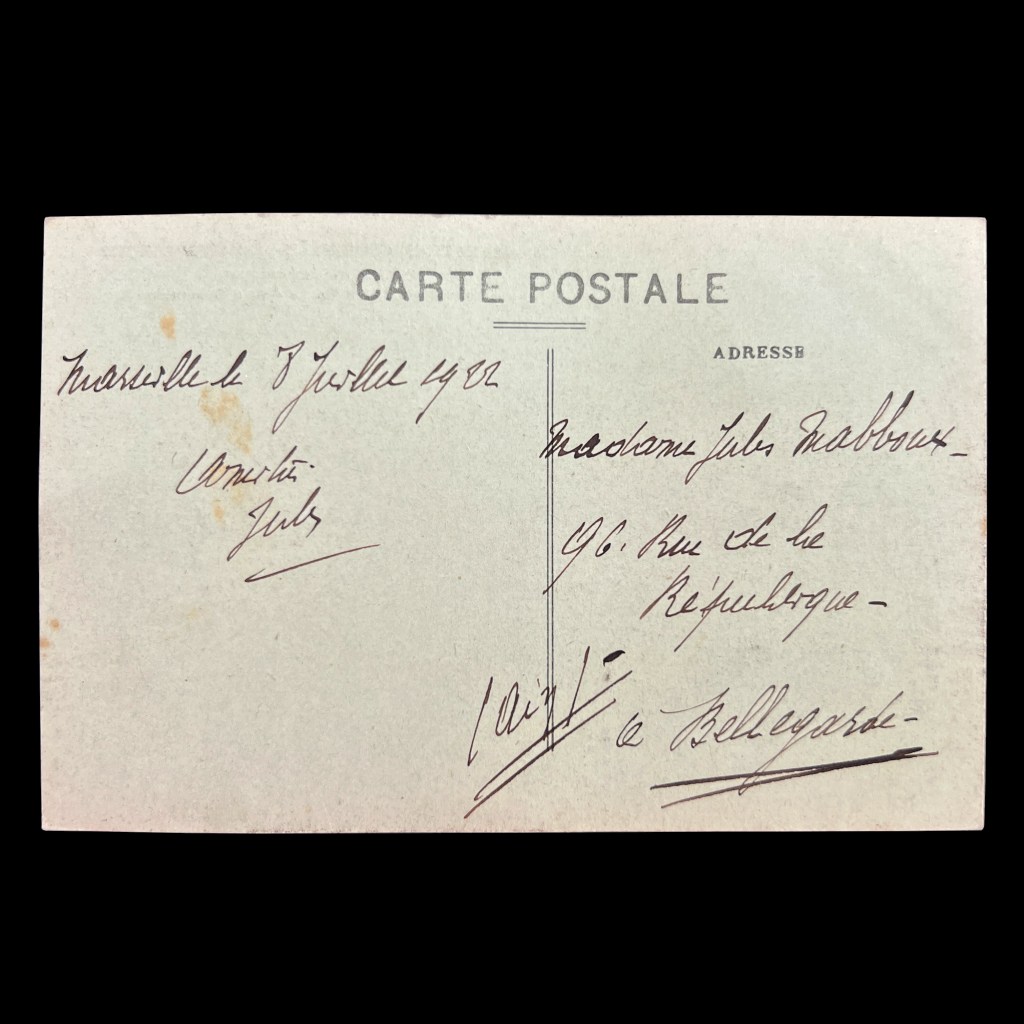 CARTE POSTALE
Marseille le 8 Juillet 1922
Amitiés.
Jules
ADRESSE
Madame Jules Mabboux -
96. Rue de la
République -
(Ain) -
à Bellegarde -